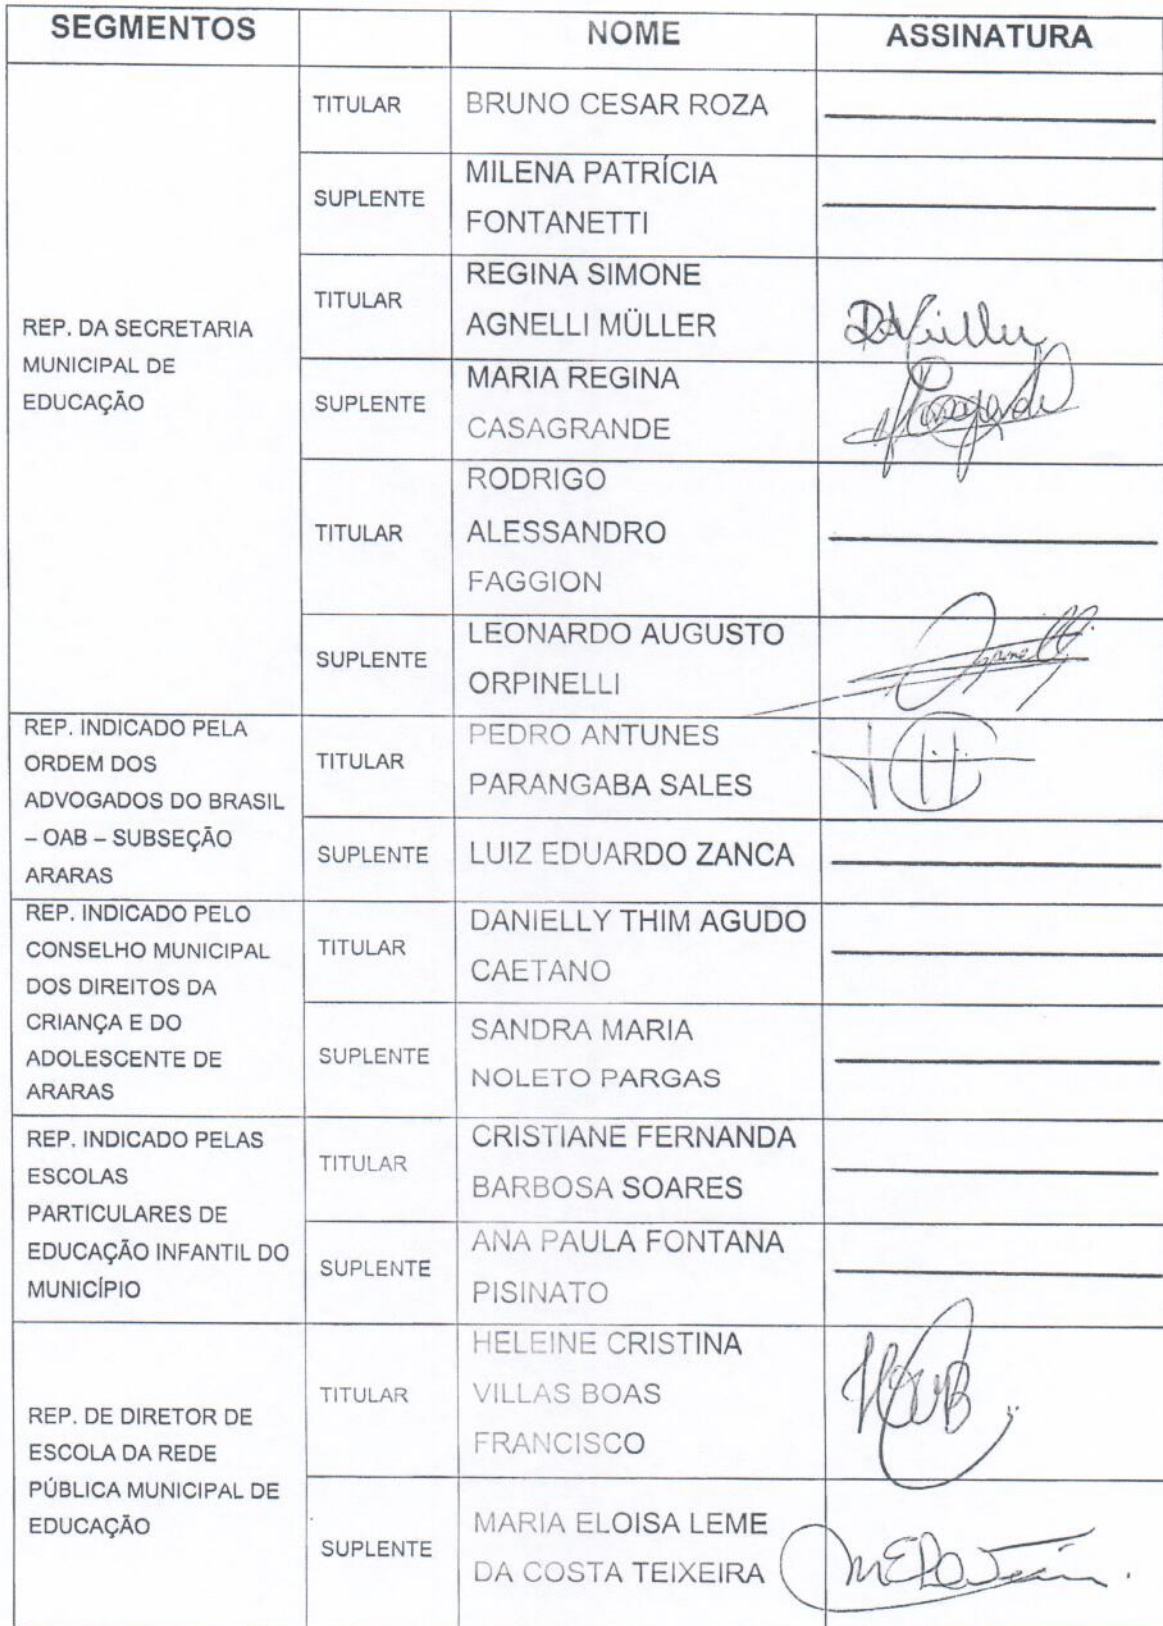 SEGMENTOS NOME ASSINATURA
REP. DA SECRETARIA
MUNICIPAL DE
EDUCAÇÃO
TITULAR
BRUNO CESAR ROZA
SUPLENTE
MILENA PATRÍCIA
FONTANETTI
TITULAR
REGINA SIMONE
AGNELLI MÜLLER
SUPLENTE
MARIA REGINA
CASAGRANDE
TITULAR
RODRIGO
ALESSANDRO
FAGGION
SUPLENTE
LEONARDO AUGUSTO
ORPINELLI
REP. INDICADO PELA
ORDEM DOS
ADVOGADOS DO BRASIL
– OAB – SUBSEÇÃO
ARARAS
TITULAR
PEDRO ANTUNES
PARANGABA SALES
SUPLENTE
LUIZ EDUARDO ZANCA
REP. INDICADO PELO
CONSELHO MUNICIPAL
DOS DIREITOS DA
CRIANÇA E DO
ADOLESCENTE DE
ARARAS
TITULAR
DANIELLY THIM AGUDO
CAETANO
SUPLENTE
SANDRA MARIA
NOLETO PARGAS
REP. INDICADO PELAS
ESCOLAS
PARTICULARES DE
EDUCAÇÃO INFANTIL DO
MUNICÍPIO
TITULAR
CRISTIANE FERNANDA
BARBOSA SOARES
SUPLENTE
ANA PAULA FONTANA
PISINATO
REP. DE DIRETOR DE
ESCOLA DA REDE
PÚBLICA MUNICIPAL DE
EDUCAÇÃO
TITULAR
HELEINE CRISTINA
VILLAS BOAS
FRANCISCO
SUPLENTE
MARIA ELOISA LEME
DA COSTA TEIXEIRA